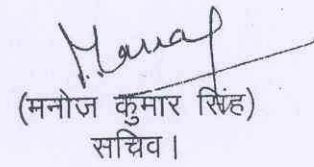 (मनोज कुमार सिंह)
सचिव।